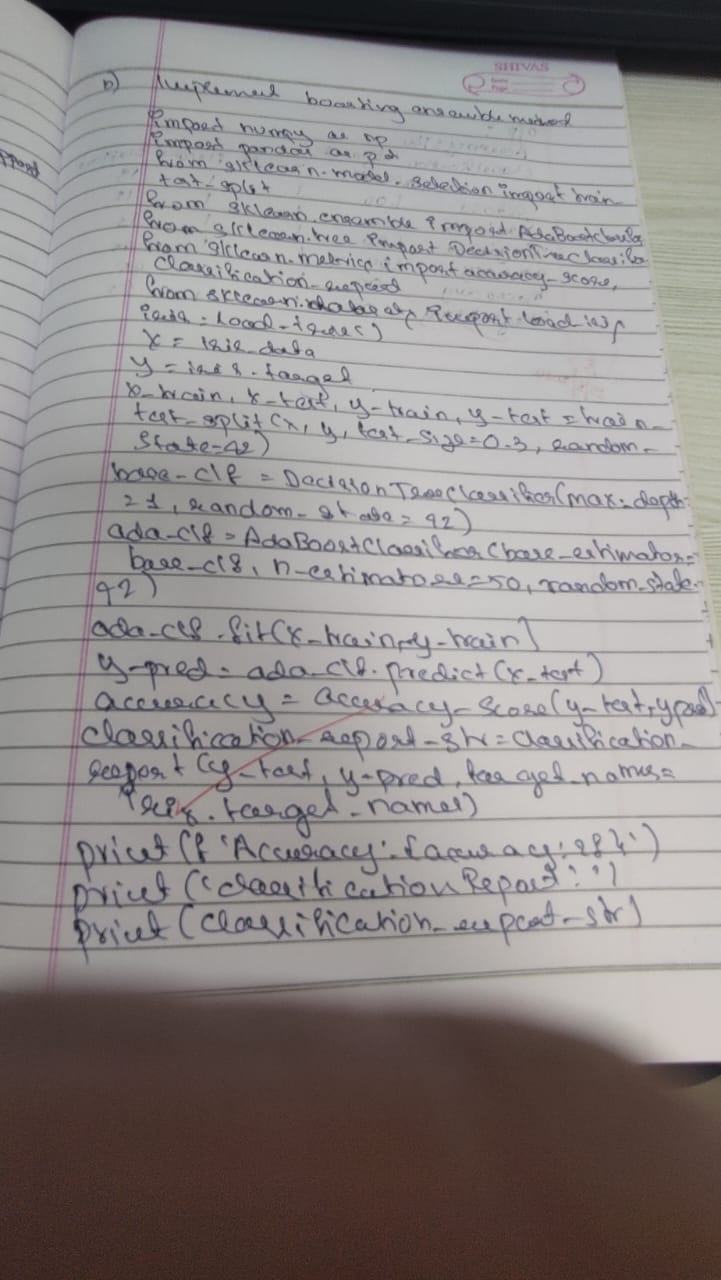 SHIVAS
b) Implement boosting ensemble method
import numpy as np
import pandas as pd
from sklearn.model_selection import train_
test_split
from sklearn.ensemble import AdaBoostClassifie
from sklearn.tree import DecisionTreeClassifie
from sklearn.metrics import accuracy_score,
classification_report
from sklearn.datasets import load_iris
iris = load_iris()
X = iris.data
y = iris.target
x_train, x_test, y_train, y_test = train_
test_split(x, y, test_size=0.3, random_
state=42)
base_clf = DecisionTreeClassifier(max_depth
=1, random_state=42)
ada_clf = AdaBoostClassifier(base_estimator=
base_clf, n_estimators=50, random_state=
42)
ada_clf.fit(x_train, y_train)
y_pred = ada_clf.predict(x_test)
accuracy = accuracy_score(y_test, y_pred)
classification_report_str = classification_
report(y_test, y_pred, target_names=
iris.target_names)
print(f'Accuracy: {accuracy:.2f}')
print('Classification Report:')
print(classification_report_str)